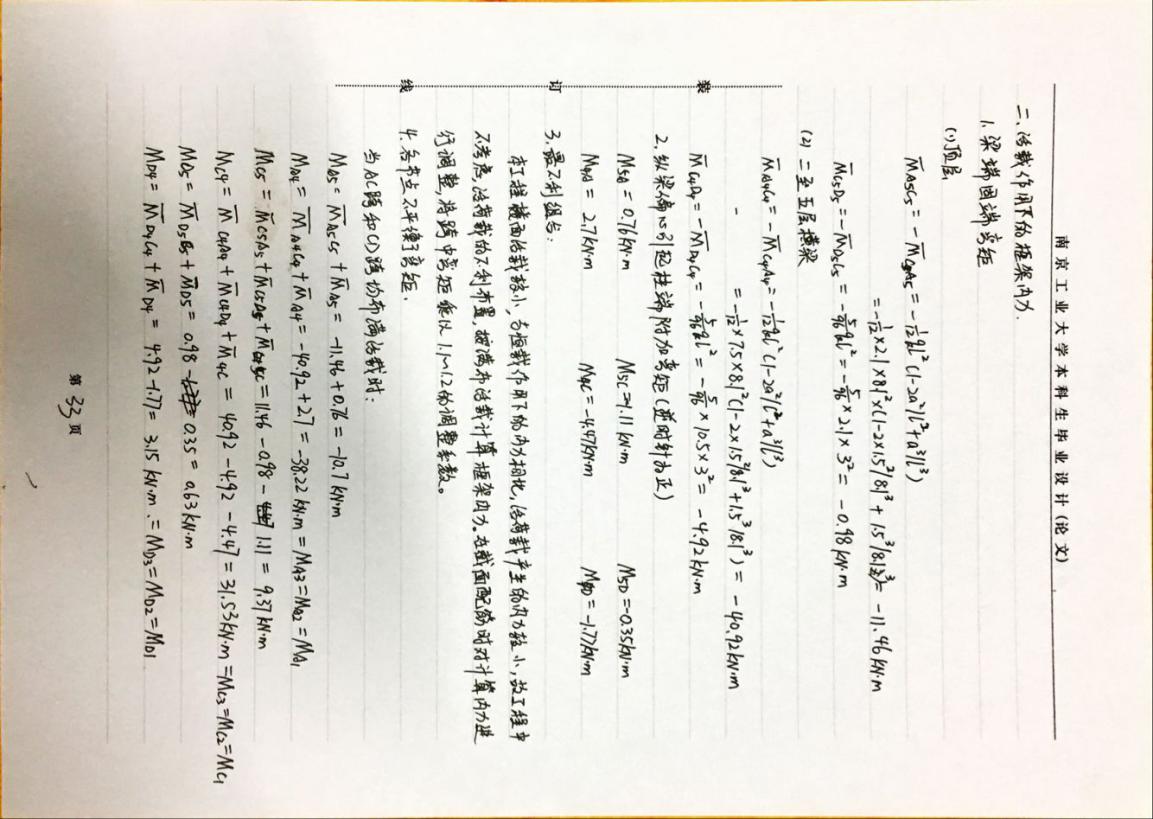 南京工业大学本科生毕业设计(论文)
二、活载作用下的框架内力.
1. 梁端固端弯矩
(1)顶层
M̄A5C5 = -M̄C5A5 = -1/12ql²(1-2a²/l²+a³/l³)
= -1/12×2.1×8.1²×(1-2×1.5²/8.1²+1.5³/8.1³) = -11.46 kN·m
M̄C5D5 = -M̄D5C5 = -5/96ql² = -5/96×2.1×3² = -0.98 kN·m
(2) 二至五层横梁
M̄A4C4 = -M̄C4A4 = -1/12ql²(1-2a²/l²+a³/l³)
= -1/12×7.5×8.1²(1-2×1.5²/8.1²+1.5³/8.1³) = -40.92kN·m
M̄C4D4 = -M̄D4C4 = -5/96ql² = -5/96×10.5×3² = -4.92kN·m
2. 纵梁偏心引起柱端附加弯矩(逆时针为正)
M5A = 0.76kN·m M5C = -1.11kN·m M5D = -0.35kN·m
M4A = 2.7kN·m M4C = -4.47kN·m M4D = -1.77kN·m
3. 最不利组合:
本工程楼面活载较小,与恒载作用下的内力相比,活荷载产生的内力较小,故工程中
不考虑活荷载的不利布置,按满布活载计算框架内力。在截面配筋时对计算内力进
行调整,将跨中弯矩乘以1.1~1.2的调整系数。
4. 各节点不平衡弯矩.
当AC跨和CD跨均布满活载时:
MA5 = M̄A5C5 + M̄A5 = -11.46+0.76 = -10.7kN·m
MA4 = M̄A4C4 + M̄A4 = -40.92+2.7 = -38.22kN·m = MA3 = MA2 = MA1
MC5 = M̄C5A5 + M̄C5D5 + M̄5C = 11.46-0.98-1.11 = 9.37kN·m
MC4 = M̄C4A4 + M̄C4D4 + M̄4C = 40.92-4.92-4.47 = 31.53kN·m = MC3 = MC2 = MC1
MD5 = M̄D5C5 + M̄D5 = 0.98-0.35 = 0.63kN·m
MD4 = M̄D4C4 + M̄D4 = 4.92-1.77 = 3.15kN·m. = MD3 = MD2 = MD1
装
订
线
第33页